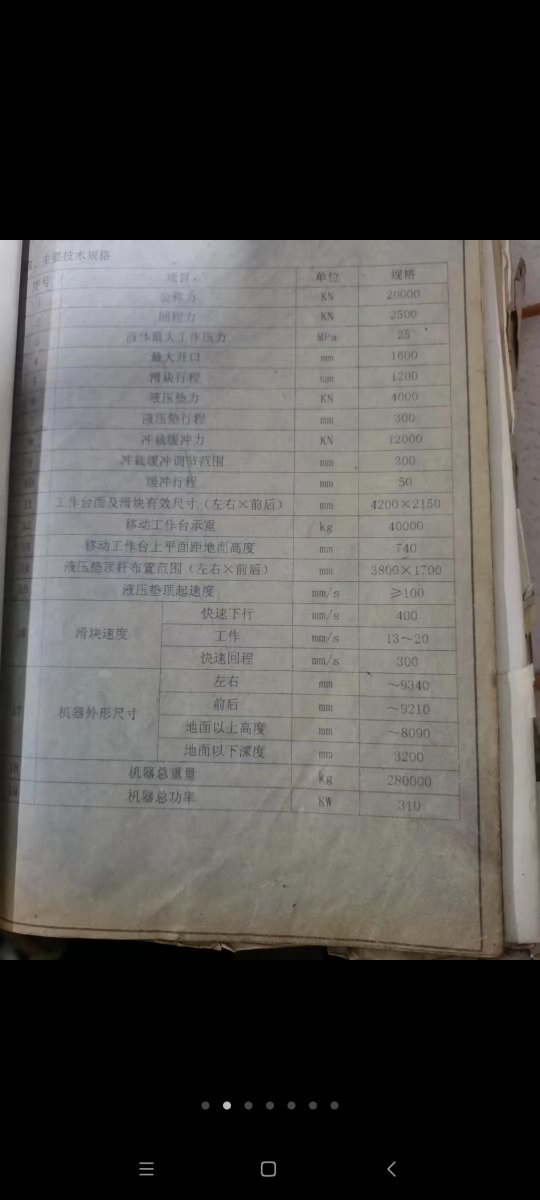 、主要技术规格
序号 项目 单位 规格
1 公称力 KN 20000
2 回程力 KN 2500
3 液体最大工作压力 MPa 25
4 最大开口 mm 1600
5 滑块行程 mm 1200
6 液压垫力 KN 4000
7 液压垫行程 mm 300
8 冲裁缓冲力 KN 12000
9 冲裁缓冲调节范围 mm 300
10 缓冲行程 mm 50
11 工作台面及滑块有效尺寸（左右×前后） mm 4200×2150
12 移动工作台承重 kg 40000
13 移动工作台上平面距地面高度 mm 740
14 液压垫顶杆布置范围（左右×前后） mm 3800×1700
15 液压垫顶起速度 mm/s ≥100
16 滑块速度 快速下行 mm/s 400
工作 mm/s 13～20
快速回程 mm/s 300
17 机器外形尺寸 左右 mm ～9340
前后 mm ～9210
地面以上高度 mm ～8090
地面以下深度 mm 3200
18 机器总重量 kg 280000
19 机器总功率 KW 310